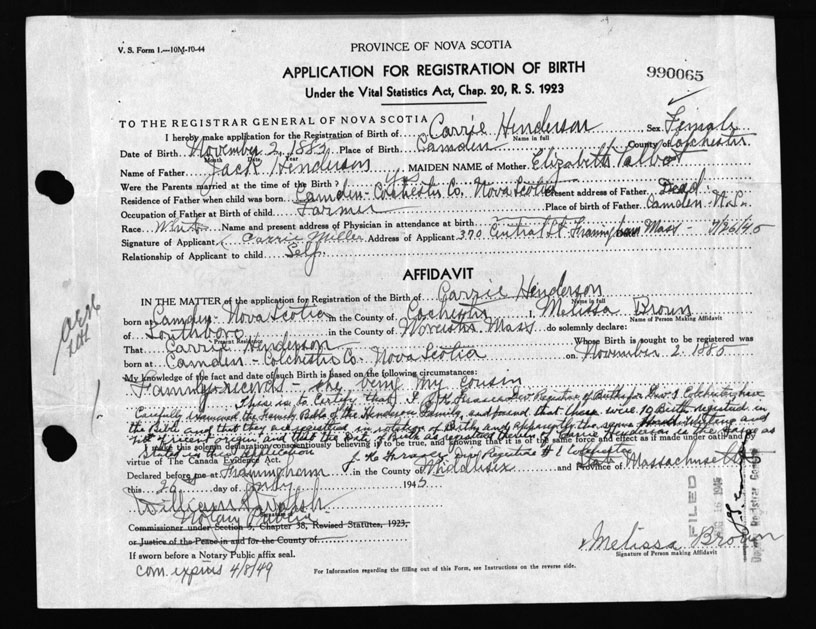 V. S. Form 1.—10M-10-44
PROVINCE OF NOVA SCOTIA
APPLICATION FOR REGISTRATION OF BIRTH
990065
Under the Vital Statistics Act, Chap. 20, R. S. 1923
TO THE REGISTRAR GENERAL OF NOVA SCOTIA
I hereby make application for the Registration of Birth of Carrie Henderson Sex Female
Name in full
Date of Birth November 2, Place of Birth Camden County of Colchester
Month Date Year
Name of Father Jack Henderson MAIDEN NAME of Mother Elizabeth Talbot
Were the Parents married at the time of the Birth? Yes
Residence of Father when child was born Camden Colchester Co. Nova Scotia Present address of Father Dead.
Occupation of Father at Birth of child Farmer Place of birth of Father Camden N.S.
Race White Name and present address of Physician in attendance at birth
Signature of Applicant Carrie Miller Address of Applicant 370 Central St. Framingham Mass - 7/26/45
Relationship of Applicant to child Self.
AFFIDAVIT
IN THE MATTER of the application for Registration of the Birth of Carrie Henderson
Name in full
born at Camden - Nova Scotia in the County of Colchester I, Melissa Brown
Name of Person Making Affidavit
of Southboro in the County of Worcester Mass do solemnly declare:
Present Residence
That Carrie Henderson Whose Birth is sought to be registered was
born at Camden - Colchester Co. Nova Scotia on November 2 1885
My knowledge of the fact and date of such Birth is based on the following circumstances:
Family records - she being my cousin
This is to Certify that I J H Fraser Div Registrar of Births for Div 1 Colchester have
Carefully examined the Family Bible of the Henderson Family, and found that there were 10 Births registered in
the Bible and that they are specified in rotation of Births and apparently the same Hand Writing and
not of recent origin and that the Date of Birth as registered therein of Carrie Henderson is the same as
stated in this application
make this solemn declaration conscientiously believing it to be true, and knowing that it is of the same force and effect as if made under oath and
virtue of The Canada Evidence Act. J H Fraser Div Registrar # 1 Colchester
Declared before me at Framingham in the County of Middlesex and Province of Massachusetts
State
this 26 day of July 1945
William Walsh
Notary Public
Commissioner under Section 3, Chapter 38, Revised Statutes, 1923,
or Justice of the Peace in and for the County of
If sworn before a Notary Public affix seal.
Com. expires 4/8/49
Melissa Brown
Signature of Person making Affidavit
For Information regarding the filling out of this Form, see Instructions on the reverse side.
FILED
Deputy Registrar General